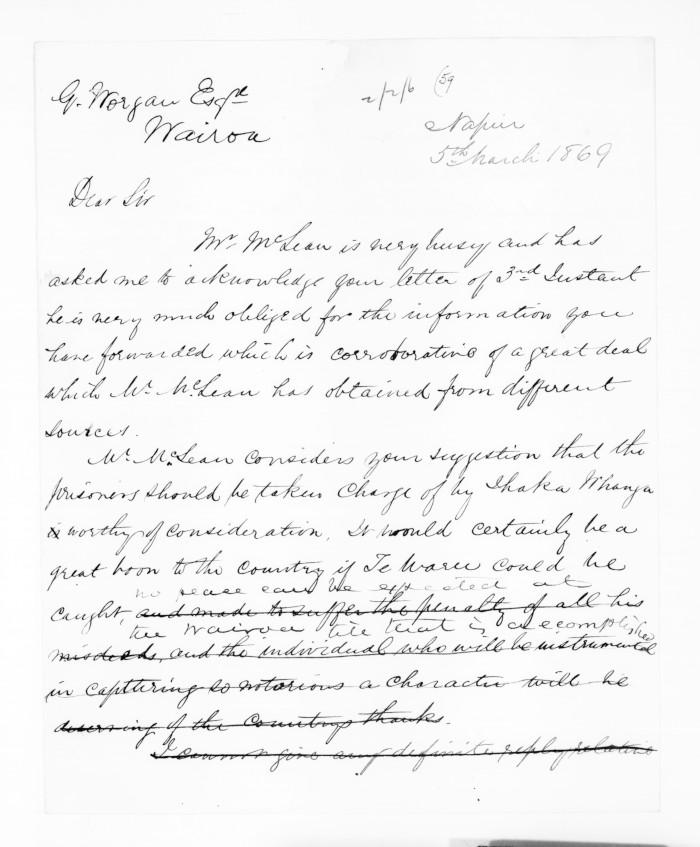 G. Worgan Esqre
Wairoa
2/2/6 (59
Napier
5th March 1869
Dear Sir
Mr. McLean is very busy and has
asked me to acknowledge your letter of 3rd Instant
he is very much obliged for the information you
have forwarded which is corroborative of a great deal
which Mr. McLean has obtained from different
sources.
Mr. McLean considers your suggestion that the
prisoners should be taken charge of by Ihaka Whanga
is worthy of consideration. It would certainly be a
great boon to the country if Te Waru could be
no peace can be expected at
caught, and made to suffer the penalty of all his
the Wairoa till that is accomplished
misdeeds, and the individual who will be instrumental
in capturing so notorious a character will be
deserving of the Countrys thanks.
I cannot give any definite reply relative